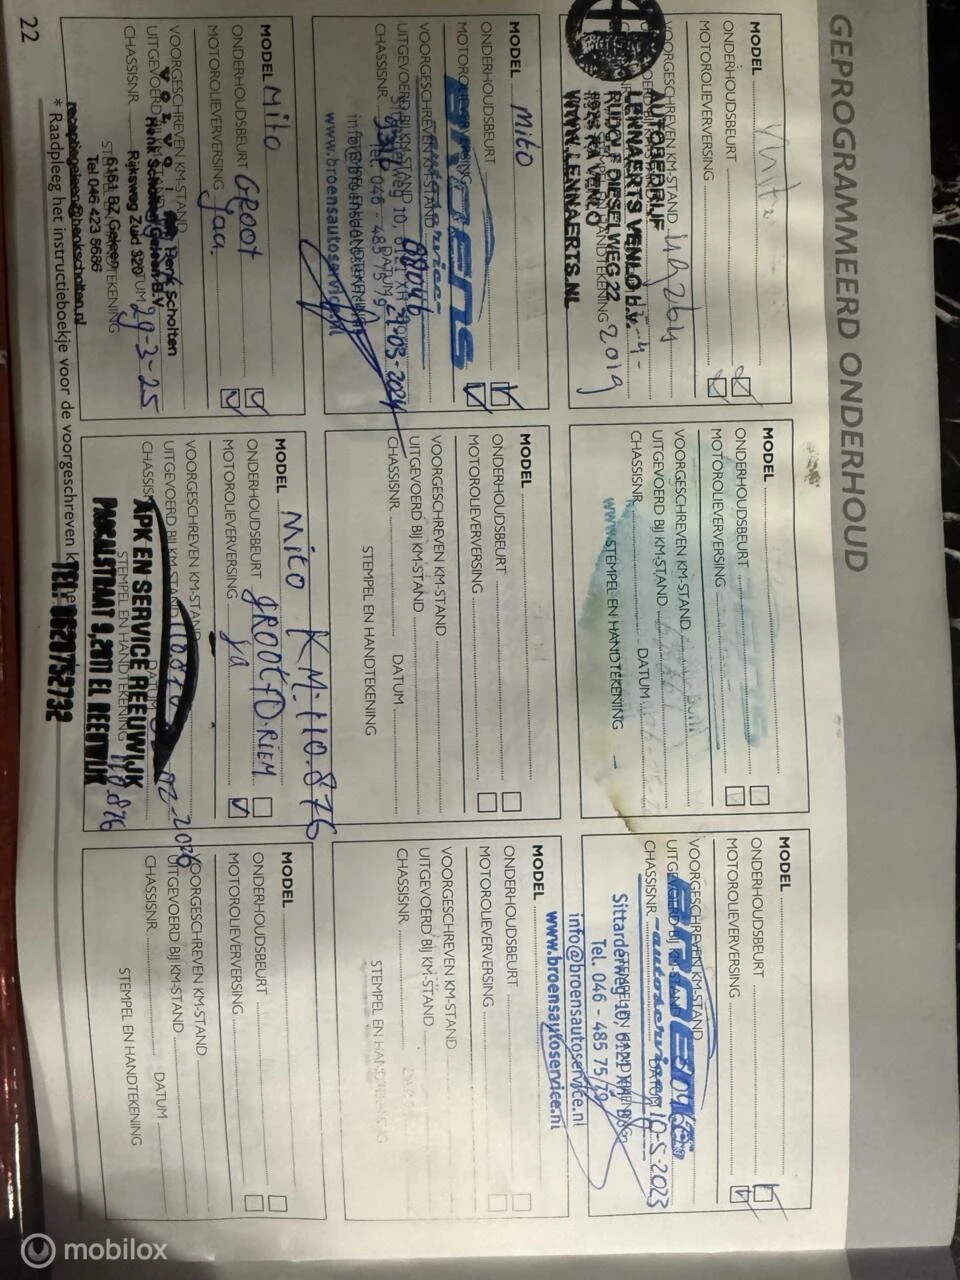 GEPROGRAMMEERD ONDERHOUD
MODEL
ONDERHOUDSBEURT
MOTOROLIEVERVERSING
VOORGESCHREVEN KM-STAND
AUTOBEDRIJF
LENNAERTS VENLO b.v.
RUDOLF DIESELWEG 22
VENLO
2019
WWW.LENNAERTS.NL
MODEL
ONDERHOUDSBEURT
MOTOROLIEVERVERSING
VOORGESCHREVEN KM-STAND
UITGEVOERD BIJ KM-STAND
CHASSISNR. DATUM
STEMPEL EN HANDTEKENING
MODEL
ONDERHOUDSBEURT
MOTOROLIEVERVERSING
VOORGESCHREVEN KM-STAND
UITGEVOERD BIJ KM-STAND
CHASSISNR. DATUM 10-5-2023
autoservice
Sittarderweg 10
Tel. 046 - 485 75 79
info@broensautoservice.nl
www.broensautoservice.nl
MODEL Mito
ONDERHOUDSBEURT
MOTOROLIEVERVERSING
BROENS
VOORGESCHREVEN KM-STAND
UITGEVOERD BIJ KM-STAND
CHASSISNR. DATUM 21-03-2024
Tel. 046 - 485 75 79
info@broensautoservice.nl
www.broensautoservice.nl
MODEL
ONDERHOUDSBEURT
MOTOROLIEVERVERSING
VOORGESCHREVEN KM-STAND
UITGEVOERD BIJ KM-STAND
CHASSISNR. DATUM
STEMPEL EN HANDTEKENING
MODEL
ONDERHOUDSBEURT
MOTOROLIEVERVERSING
VOORGESCHREVEN KM-STAND
UITGEVOERD BIJ KM-STAND
CHASSISNR.
STEMPEL EN HANDTEKENING
MODEL Mito
ONDERHOUDSBEURT Groot
MOTOROLIEVERVERSING Jaa.
VOORGESCHREVEN KM-STAND
UITGEVOERD BIJ KM-STAND
Henk Scholten
Henk Scholten Geleen B.V.
CHASSISNR. DATUM 29-3-25
Rijksweg Zuid 320
6161 BZ Geleen
Tel 046 423 5686
receptiegeleen@henkscholten.nl
MODEL Mito KM: 110.876
ONDERHOUDSBEURT GROOT+D.RIEM
MOTOROLIEVERVERSING Ja
VOORGESCHREVEN KM-STAND
UITGEVOERD BIJ KM-STAND
CHASSISNR. DATUM
APK EN SERVICE REEUWIJK
STEMPEL EN HANDTEKENING 110.876
PASCALSTRAAT 9, 2811 EL REEUWIJK
TEL: 0628752732
MODEL
ONDERHOUDSBEURT
MOTOROLIEVERVERSING
VOORGESCHREVEN KM-STAND
UITGEVOERD BIJ KM-STAND
CHASSISNR. DATUM
STEMPEL EN HANDTEKENING
* Raadpleeg het instructieboekje voor de voorgeschreven
22
mobilox